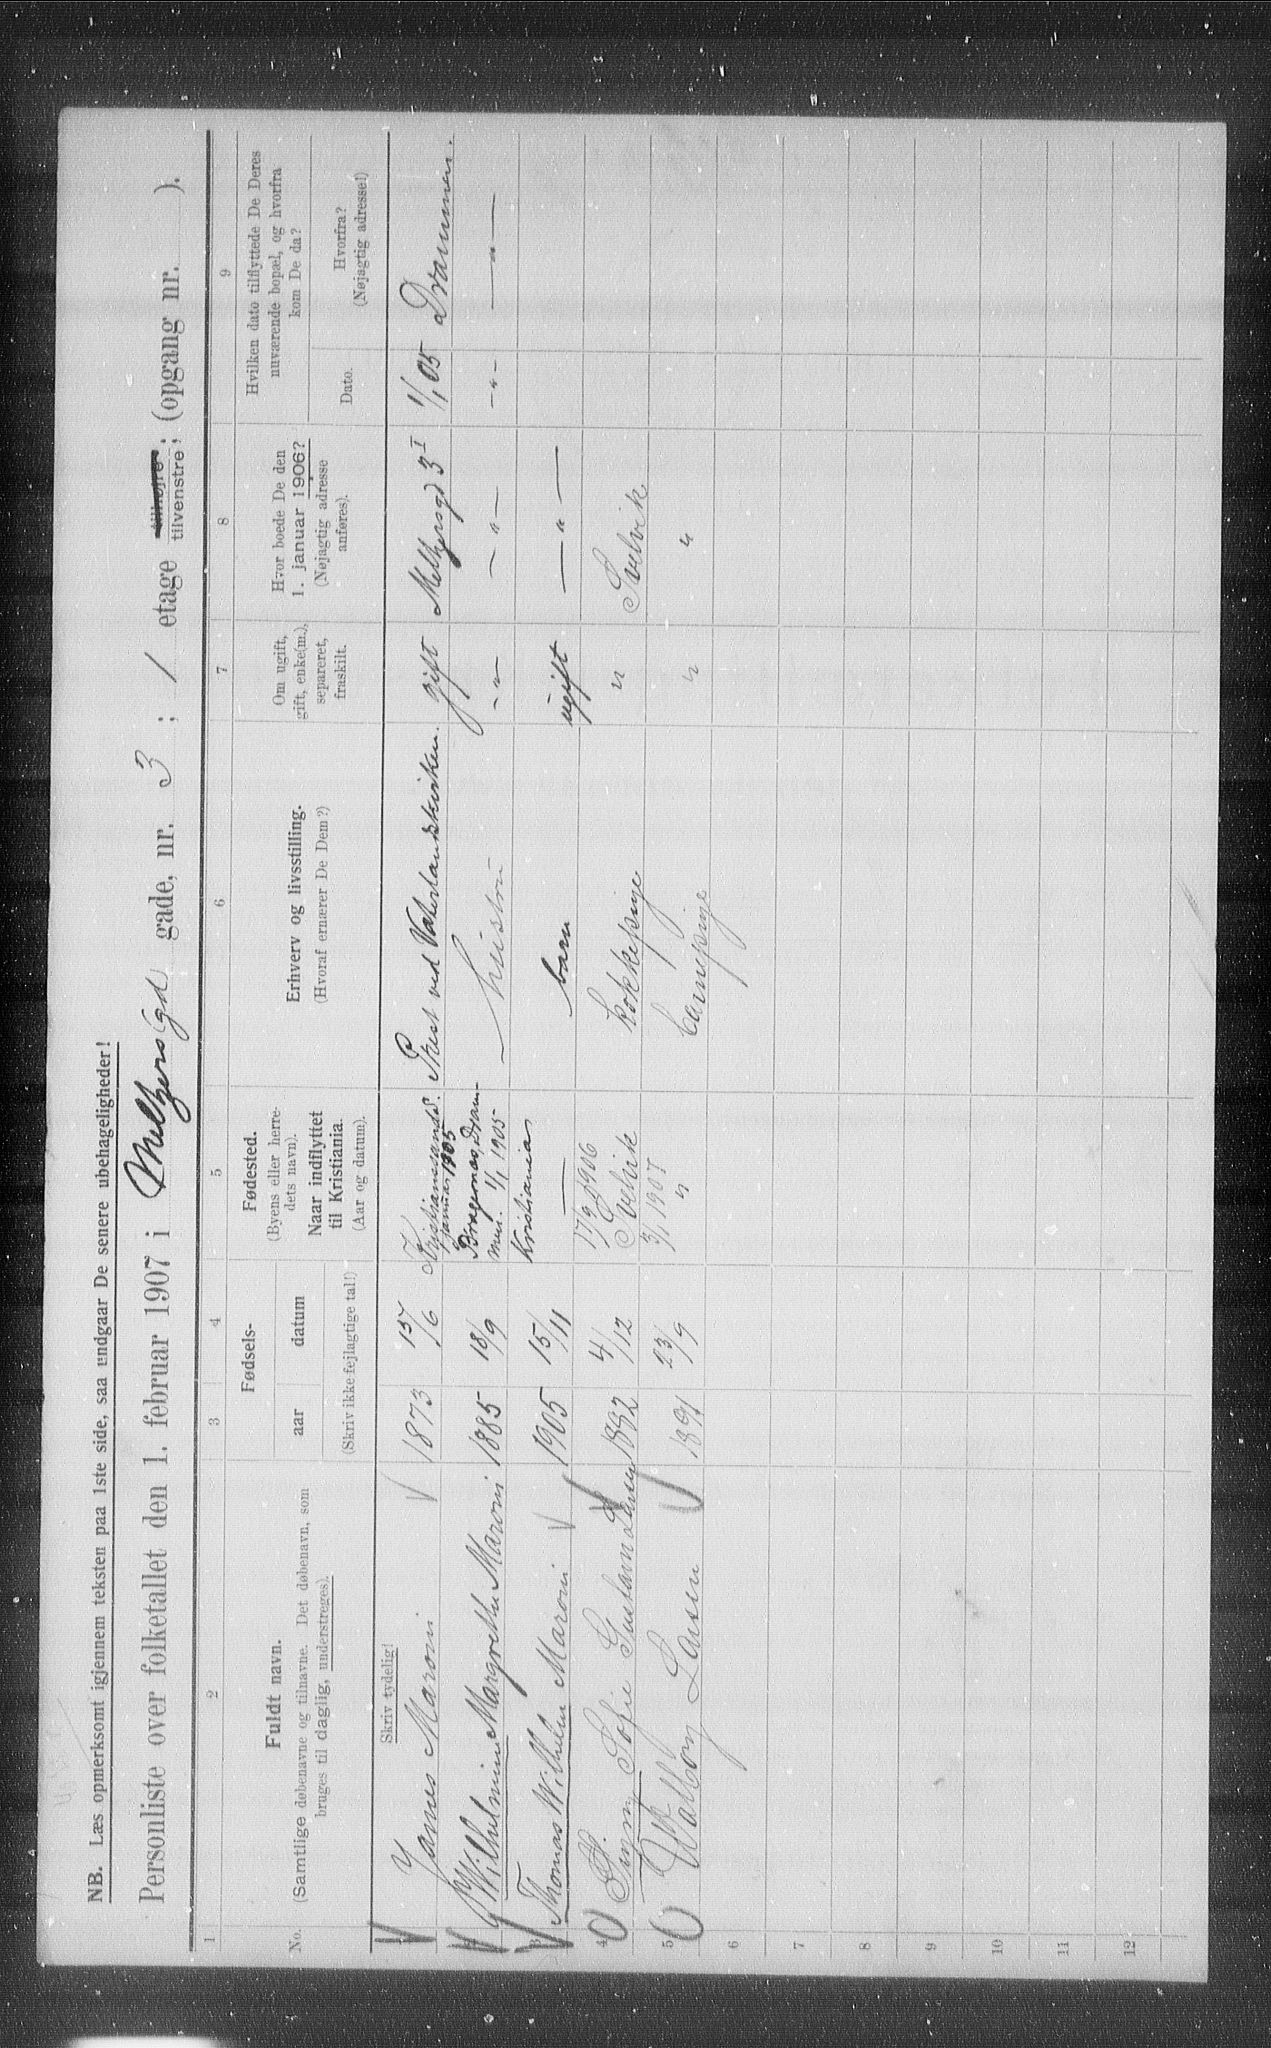 NB. Læs opmerksomt igjennem teksten paa 1ste side, saa undgaar De senere ubehageligheder!
Personliste over folketallet den 1. februar 1907 i Meltzersgd gade, nr. 3 ; 1 etage tilhøjre ; tilvenstre; (opgang nr. ).
1 2 3 4 5 6 7 8 9
No.
Fuldt navn.
(Samtlige døbenavne og tilnavne. Det døbenavn, som
bruges til daglig, understreges).
Fødsels-
aar datum
(Skriv ikke fejlagtige tal!)
Fødested.
(Byens eller herre-
dets navn).
Naar indflyttet
til Kristiania.
(Aar og datum).
Erhverv og livsstilling.
(Hvoraf ernærer De Dem?)
Om ugift,
gift, enke(m.),
separeret,
fraskilt.
Hvor boede De den
1. januar 1906?
(Nøjagtig adresse
anføres).
Hvilken dato tilflyttede De Deres
nuværende bopæl, og hvorfra
kom De da?
Dato.
Hvorfra?
(Nøjagtig adresse!)
Skriv tydelig!
James Maroni 1873 15/6 Kristianssund januar 1905 Prest ved Vaterlandskirken. gift Meltzersgd 3 I 1/1 05 Drammen.
Wilhelmine Margrethe Maroni 1885 18/9 Bragernes, Dram-
men. 1/1 1905 hustru - " - - " - - " - - " -
3 Thomas Wilhelm Maroni 1905 15/11 Kristiania barn ugift - " -
4 Signy Sofie Gustava Larsen 1882 4/12 17/9 1906
Svelvik kokkepige " Svelvik
5 Valborg Larsen 1891 23/9 3/1 1907
" barnepige " "
6
7
8
9
10
11
12